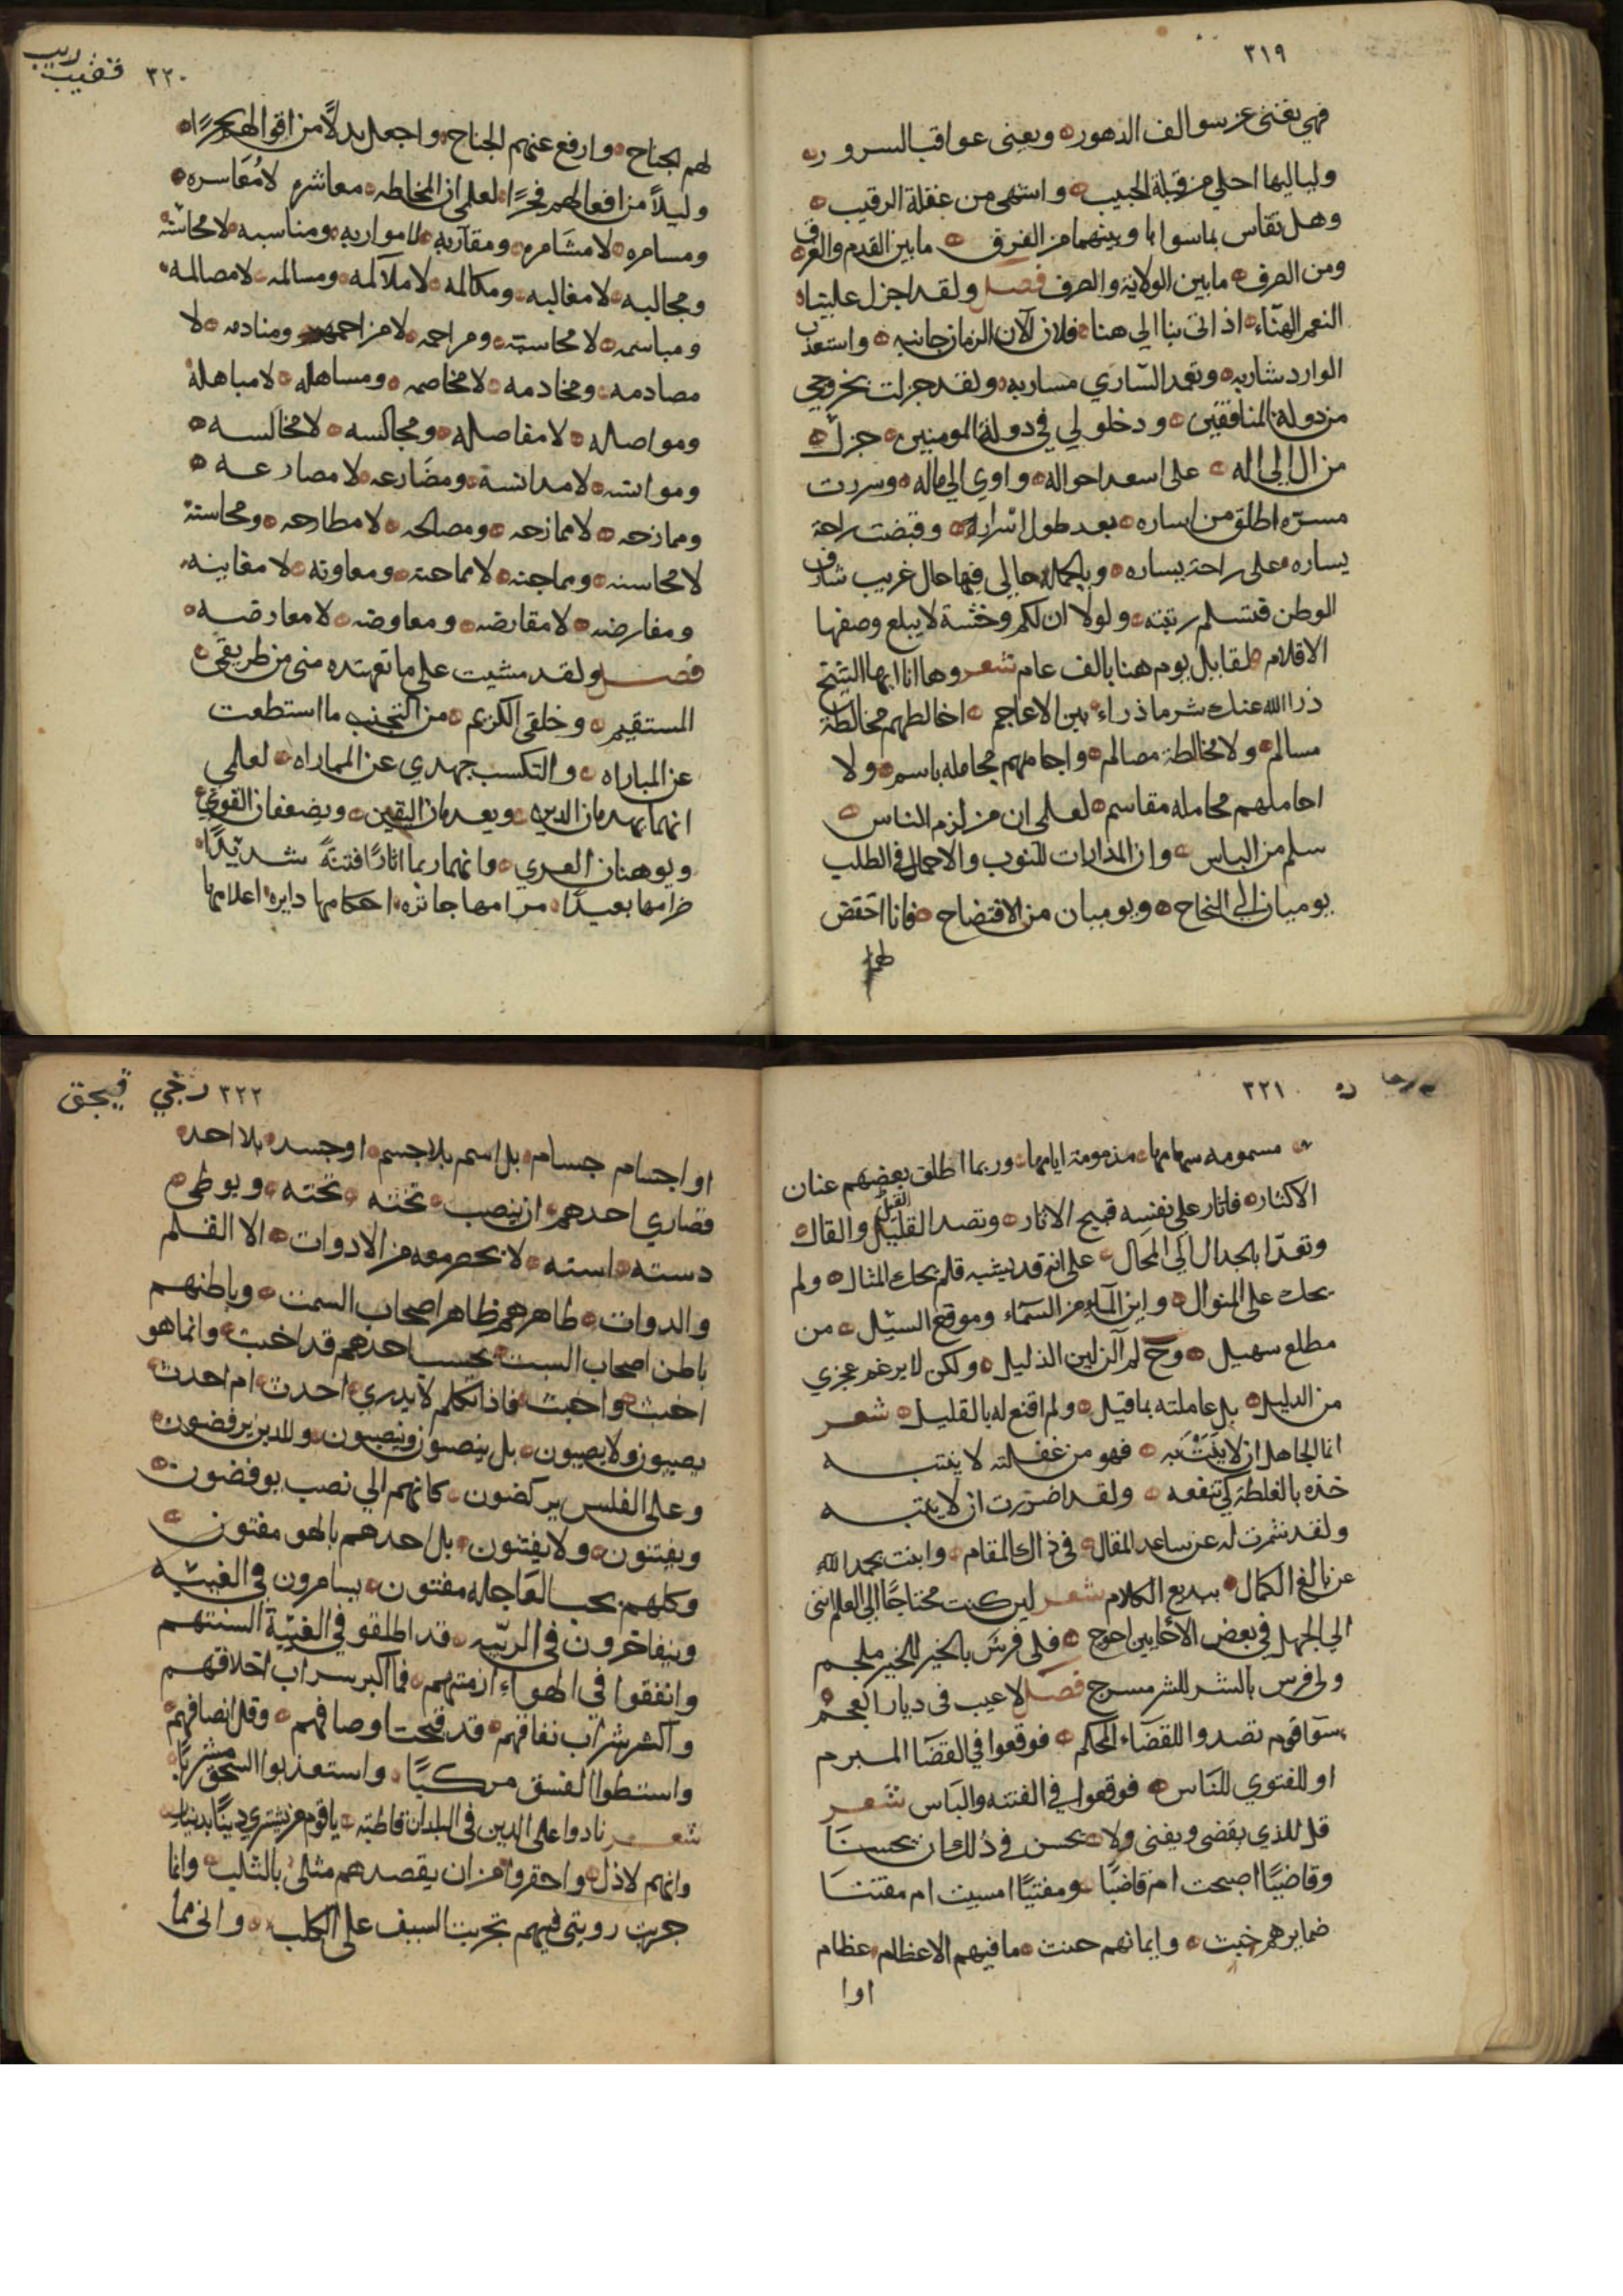 ٣١٩
فهي تغني عن سوالف الدهور وبعنى عواقب السرور
ولياليها احلي من قبلة الحبيب واشهى من غفلة الرقيب
وهل تقاس بما سواها وبينهما من الفرق ما بين القدم والفرق
ومن الصرف ما بين الولاية والصرف فصل ولقد اجزل علينا
النعم الهناء اذ اتى بنا الي هنا فلان الآن الزمان جانبه واستعذب
الوارد شاربه وتعمد الساري مساربه ولقد جزلت بخروجي
من دولة المنافقين ودخلولي في دولة المومنين جزل
من ال الي اله على اسعد احواله واوي الي ماله وسررت
مسرة اطلق من اساره بعد طول اسراره وقبضت راحة
يساره على راحة يساره وبالجملة حالي فيها حال غريب شارف
الوطن فتسلم رتبته ولولا ان لكم وخشة لا يبلع وصفها
الاقلام لقابل يوم هنا بالف عام شعر وها انا ايها الشيخ
ذرا الله عنك شر ما ذراء بين الاعاجم اخالطهم مخالطة
مسالم ولا مخالطة مصالم واجاملهم مجاملة باسم ولا
احاملهم محاملة مقاسم لعلي ان من لزم الناس
سلم من الباس وان المدارات للنوب والاجمال في الطلب
يوميان الي النجاح ويوميان من الافتضاح فانا اخفض
لهم
٣٢٠
لهم الجناح وارفع عنهم الجناح واجعل بدلاً من اقوالهم بحرًا
وليلاً من افعالهم فجرًا لعلمي ان المخاطه معاشره لا معاسره
ومسامره لا مشامره ومقاربه لا مواربه ومناسبه لا محاشه
ومجالبه لا مغالبه ومكالمه لا ملالمه ومسالمه لا مصالمه
ومباسمه لا محاسمه ومراحمه لا مزاحمه ومنادمه لا
مصادمه ومخادمه لا مخاصمه ومساهله لا مباهلة
ومواصله لا مفاصله ومجالسه لا مخالسه
وموانسه لا مدانسة ومضارعه لا مصارعه
وممازحه لا ممازحه ومصالحه لا مطارحه ومحاسنة
لا مخاسنه ومماجنه لا مماحنه ومعاونه لا مغابنه
ومفارضه لا مقارضه ومعاوضه لا معارضه
فصل ولقد مشيت علي ما تعهده مني من طريقي
المستقيم وخلقي الكريم من التجنب ما استطعت
عن المباراه والتكسب جهدي عن المماراه لعلمي
انهما يهدمان الدين ويعدمان اليقين ويضعفان القوي
ويوهنان العري وانهما ربما اثارا فتنة شديدًا
ضرامها بعيدًا مرامها جائزه احكامها دايره اعلامها
٣٢١
مسمومه سهامها مذمومة ايامها وربما اطلق بعضهم عنان
الاكثار فاثار على نفسه قبيح الاثار وتصد القيل والقال
وتعدا بالجدال الي المحال على انه قد يشبه قلم يحك المثال ولم
يحك على المنوال واين الماء من السماء وموقع السيل من
مطلع سهيل وح لم آلن لين الذليل ولكن لا يرغم عجزي
من الدليل بل عاملته بما قيل ولم اقنع له بالقليل شعر
انما الجاهل ان لا يَنْتَبه فهو من غفلته لا ينتبه
خذه بالغلطة كي تنفعه ولقد اضررت ان لا ينتبه
ولقد شمرت له عن ساعد المقال في ذاك المقام وابنت بحمد الله
عن بالغ الكمال ببديع الكلام شعر لين كنت محتاجًا الي العلم انني
الي الجهل في بعض الاحايين احوج فلي فرس بالخير للخير ملجم
ولي فرس بالشر للشر مسرج فصل لا عيب في ديار العجم
سوا قوم تصدوا للقضاء المحكم فوقعوا في القضا المبرم
او للفتوي للناس فوقعوا في الفتنه والباس شعر
قل للذي يقضي ويفني ولا يحسن في ذلك ان يحسنا
وقاضيًا اصبحت ام قاضبًا ومفتيًا امسيت ام مفتتنا
ضمايرهم خبث وايمانهم حنث ما فيهم الا عظام عظام
اوا
٣٢٢
او اجسام جسام بل اسم بلا جسم اوجسد بلا احد
قصاري احدهم ان ينصب تخته تحته ويوطي
دسته استه لا يحضر معه من الادوات الا القلم
والدوات ظاهرهم ظاهر اصحاب السمت وباطنهم
باطن اصحاب السبت يحسب احدهم قد اخبت وانما هو
اخبث واخبث فاذا تكلم لا يدري احدث ام احدث
يصيبون ولا يصيبون بل ينصبون وينصبون وللدين يرفضون
وعلى الفلس يركضون كانهم الي نصب يوفضون
ويفتنون ولا يفتنون بل احدهم بالهو مفتون
وكلهم بحب العاجله مفتون يسامرون في الغيبه
ويتفاخرون في الريبه قد اطلقو في الغيبة السنتهم
وانفقوا في الهواء ازمتهم فما اكبر سراب اخلاقهم
واكثر شراب نفاقهم قد قبحت اوصافهم وقل انصافهم
واستطوا الفسق مركبًا واستعذبوا السحق مشربًا
شعر نادوا على الدين في البلدان قاطبة يا قوم من يشتري دينًا بدينار
وانهم لاذل واحقر من ان يقصدهم مثلي بالثلب وانما
جربت رويتي فيهم تجربت السيف على الكلب واني مما